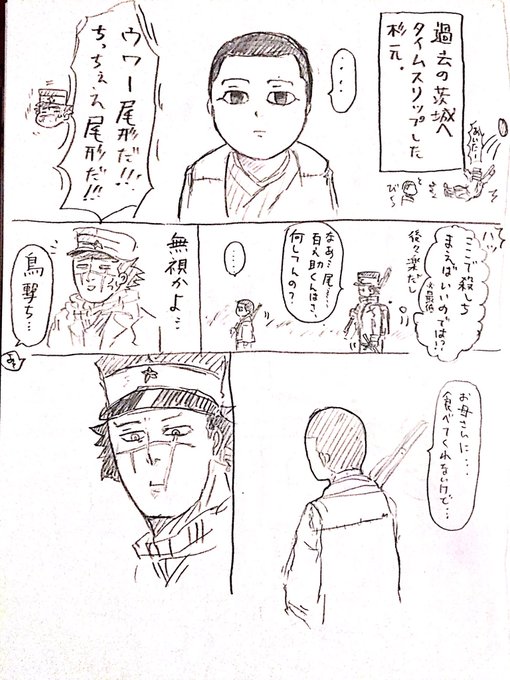 過去の茨城へ
タイムスリップした
杉元。
・・・・
ウワー尾形だ!!!
ちっちぇえ尾形だ!!!
ハッ
ここで殺しち
まえばいいのでは?!
後々楽だし
なあ…尾…
百之助くんはさ、
何してんの?
・・・・
無視かよ…
鳥撃ち…
お母さんに・・・
食べてくれないけど…